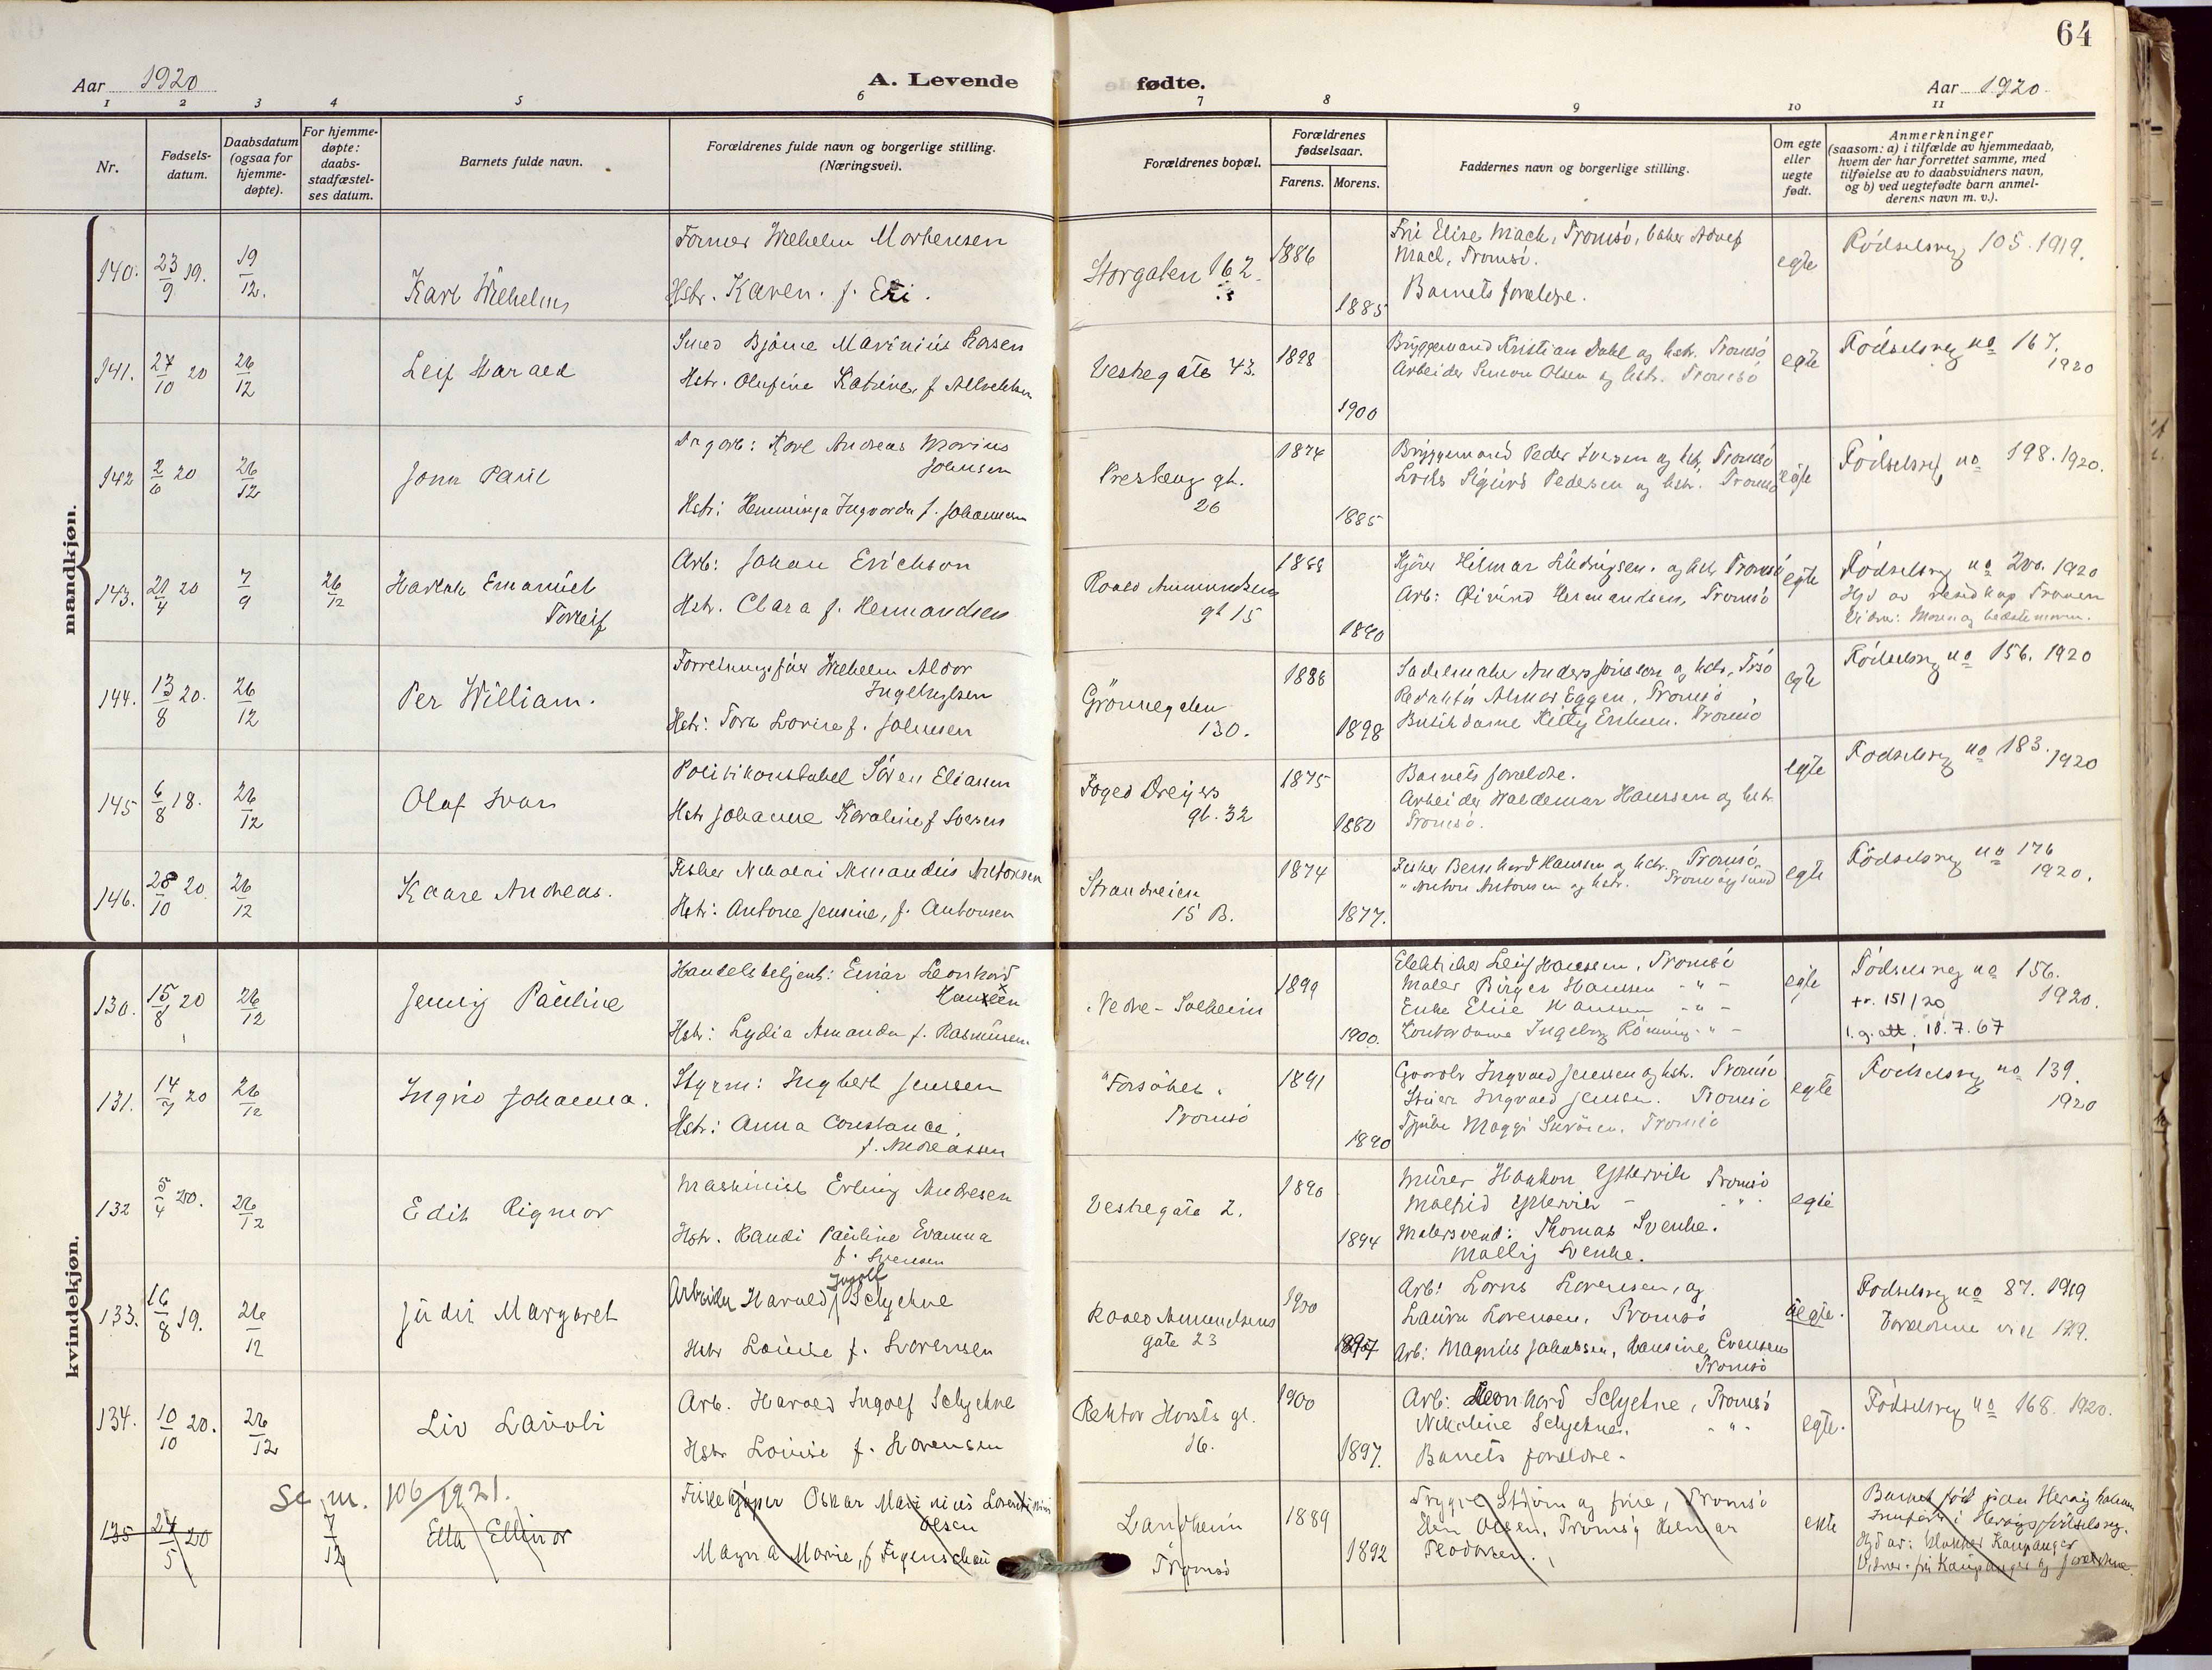 64
Aar 1920
A. Levende fødte.
Aar 1920.
1 2 3 4 5 6 7 8 9 10 11
Nr.
Fødsels-
datum.
Daabsdatum
(ogsaa for
hjemme-
døpte).
For hjemme-
døpte:
daabs-
stadfæstel-
ses datum.
Barnets fulde navn.
Forældrenes fulde navn og borgerlige stilling.
(Næringsvei).
Forældrenes bopæl.
Forældrenes
fødselsaar.
Farens. Morens.
Faddernes navn og borgerlige stilling.
Om egte
eller
uegte
født.
Anmerkninger
(saasom: a) i tilfælde av hjemmedaab,
hvem der har forrettet samme, med
tilføielse av to daabsvidners navn,
og b) ved uegtefødte barn anmel-
derens navn m. v.).
mandkjøn.
140. 23/9 19. 19/12. Karl Wilhelm
Former Wilhelm Mortensen
Hstr. Karen f.
Storgaten 162
1886
1885
Mack, Tromsø.
Barnets forældre.
egte
Fødselsreg 105. 1919.
141. 27/10 20 26/12 Leif Harald
Smed Bjarne Marinius
Hstr. Olufine Katrine, f.
Vestregate 43.
1898
1900
Bryggemand Kristian Dahl og hstr. Tromsø
Arbeider Simon Olsen og hstr. Tromsø
egte
Fødselsreg no 167.
1920
142 2/6 20 26/12 John Paul
Karl Andreas Marius
Johnsen
Hstr: Hemminga Ingvarda f. Johannesen
Presteng gt.
26
1874
1885
Bryggemand Peder Iversen og hstr. Tromsø
Lods Sigurd Pedersen og hstr. Tromsø
egte
Fødselsreg no 198. 1920.
143. 21/4 20 7/9 26/12 Emanuel
Torleif
Arb: Johan Erickson
Hstr. Clara f. Hermandsen
Roald Amundsens
gt 15
1888
1890
Kjører Hilmar Ludvigsen. og hstr Tromsø
Arb: Øivind Hermandsen, Tromsø
egte
Fødselsreg no 200. 1920
Hjd av resid kap
Moren og bedstemoren.
144. 13/8 20. 26/12 Per William.
Wilhelm Aldor
Ingebrigtsen
Hstr: Tora Lovise f. Johnsen
Grønnegaten
130.
1888
1898
Sadelmaker Anders og hstr, Trsø
Redaktør Almar Eggen, Tromsø
Butikdame Kitty Eriksen. Tromsø
egte
Fødselsreg no 156. 1920
145 6/8 18. 26/12 Olaf Ivar
Politikonstabel Søren Eliassen
Hstr Johanne Karoline f Iversen
Foged Dreyers
gt. 32
1875
1880
Barnets forældre.
Arbeider Waldemar Hanssen og hstr
Tromsø.
egte
Fødselsreg no 183.
1920
146. 28/10 20 26/12 Kaare Andreas.
Fisker Nikolai Amandus Antonsen
Hstr: Antone Jensine, f. Antonsen
Strandveien
15 B.
1874
1877.
Fisker Bernhard Hansen og hstr. Tromsø
" Anton Antonsen og hstr. Tromsøysund
egte
Fødselsreg no 176
1920.
kvindekjøn.
130. 15/8 20 26/12 Jenny Pauline
Handelsbetjent: Einar Leonhard
Hanssen
Hstr: Lydia Amanda f. Rasmussen
Nedre-Solheim
1899
1900.
Elektriker Leif Hanssen, Tromsø
Maler Birger Hanssen - " -
Enke Elise Hanssen - " -
Kontordame Ingeborg Rønning - " -
egte
Fødselsreg no 156.
1920.
tr. 151/20
l. g. att. 18.7.67
131. 14/7 20 26/12 Ingrid Johanna.
Styrm: Ingbert Jenssen
Hstr: Anna Constance,
f. Andreassen
"Forsøket"
Tromsø
1891
1890
Ingvald Jenssen og hstr. Tromsø
Ingvald Jenssen. Tromsø
Maggi Tromsø
egte
Fødselsreg no 139.
1920
132 5/4 20. 26/12 Edit Rigmor
Maskinist Erling Andresen
Hstr. Randi Pauline Evanna
f. Svensen
Vestregata 2.
1890
1894
Murer Haakon Yttervik Tromsø
Malfrid Yttervik - " -
Malersvend: Thomas Svenke.
Mally Svenke.
egte
133. 16/8 19. 26/12 Judit Margaret
Arbeider Harald Ingolf Schjelne
Hstr Louise f. Lorensen
Roald Amundsens
gate 23
1900
1897
Arb: Lorens Lorensen, og
Laura Lorensen, Tromsø
Arb: Magnus Jakobsen, Hansine Evensen
Tromsø
uegte.
Fødselsreg no 87. 1919
134. 10/10 20. 26/12 Liv
Arb. Harald Ingolf Schjelne
Hstr Louise f. Lorensen
Rektor Horsts gt.
16.
1900
1897.
Arb: Leonhard Schjelne, Tromsø
Nikoline Schjelne. - " -
Barnets forældre.
egte.
Fødselsreg no 168. 1920.
Se m. 106/1921.
135 24/5 20 7/12 Ella Ellinor
Fiskekjøper Oskar Marinius
Olsen
Magna Marie, f Figenschau
Landheim
Tromsø
1889
1892
Trygve Strøm og frue, Tromsø
Olsen, Tromsø Hilmar
Teodorsen.
ekte
Barnet født paa Herøy
Herøys fødselsreg.
Hjd av: Klokker Kaupanger